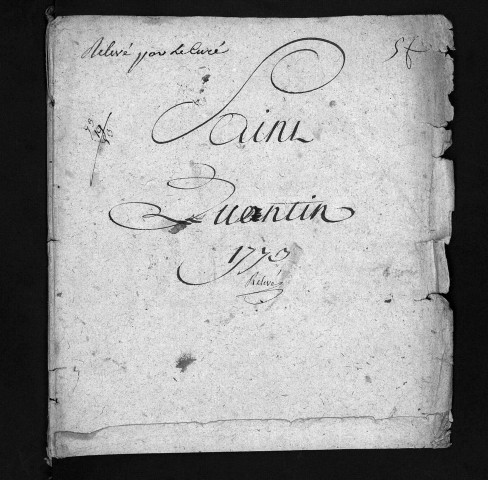 Relevé par le Curé
Saint
Quantin
1773
Relevé